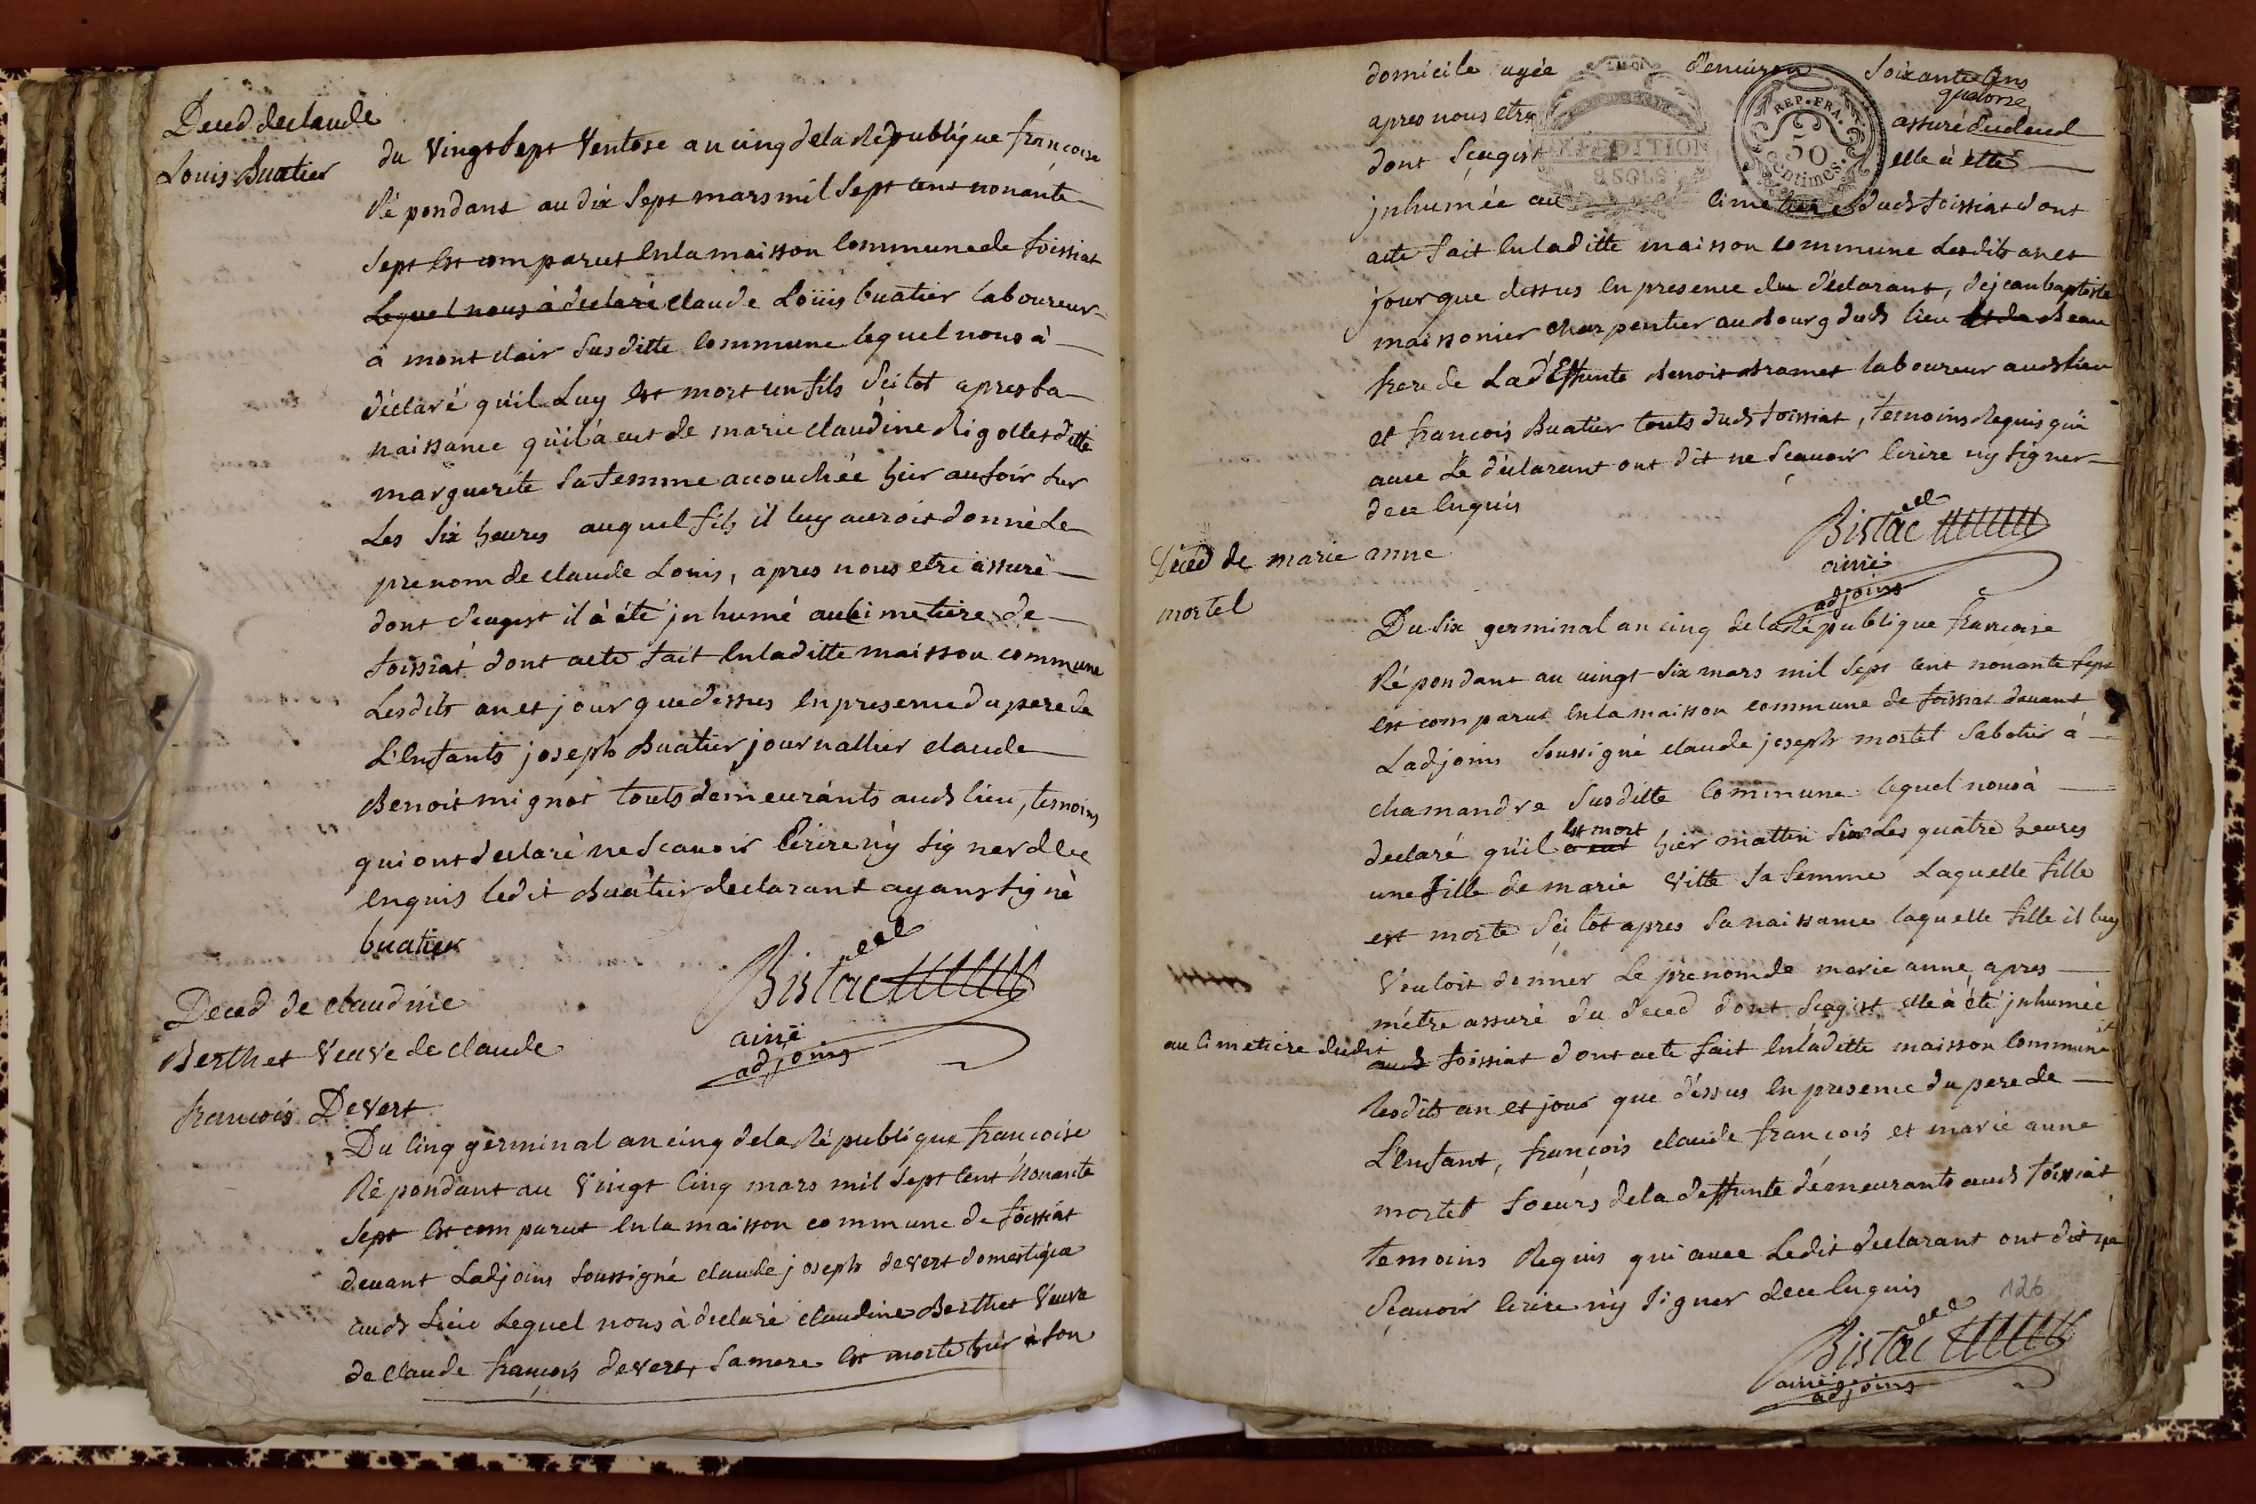 Deced de claude
Louis Buatier
du Vingt Sept Ventose an cinq de la Republique françoise
Répondant au dix Sept mars mil Sept cent nonante
Sept Est comparut En la maisson Commune de foissiat
Lequel nous à declaré claude Loüis buatier laboureur
a montclair Susditte Commune lequel nous à
déclaré qu'il Luy Est mort un fils Seitot apres Sa
naissance qu'il a eut de marie claudine Rigollet ditte
marguerite Sa femme accouchée hier au soir sur
Les Six heures auquel fils il luy auroit donné Le
prenom de claude Louis, apres nous etre assuré
dont Seagist il à été jnhumé au Cimetiere de
foissiat dont acte fait En laditte maisson commune
Lesdits an et jour que dessus En presence du pere de
L'Enfants joseph Buatier journallier claude
Benoit mignot touts demeurants auds lieu, temoins
qui ont declaré ne Scavoir Ecrire ny Signer de ce
Enquis ledit Buatier declarant ayant Signé
buatier
Bistac
ainé
adjoint
Deced de claudine
Berthet Veuve de claude
francois Devert
Du Cinq germinal an cinq de la Republique françoise
Répondant au Vingt Cinq mars mil Sept Cent Nonante
Sept Est comparut En la maisson commune de foissiat
devant Ladjoint Soussigné claude joseph devert domestique
auds Lieu Lequel nous à declaré claudine Berthet Veuve
de claude françois devert, Sa mere Est morte hier à Son
domicile agée d'environ Soixante Ans
quatorze
apres nous etre assuré du deced
dont Scagist elle à étté
jnhumée au Cimetiere duds foissiat dont
acte fait En laditte maisson commune Lesdits an et
jour que dessus En presence du déclarant, de jean baptiste
maissonier charpentier au Bourg duds lieu et de Beau
frere de La déffunte Benoit Bramet laboureur auds lieu
et francois Buatier touts duds foissiat, temoins Requis qui
avec Le déclarant ont dit ne Sçavoir Ecrire ny Signer
de ce Enquis
Bistac
ainé
adjoint
EXPEDITION
8 SOLS
REP. FRA.
50
Centimes
Déced de marie anne
mortel
Du Six germinal an cinq de la République francoise
Répondant au vingt Six mars mil Sept Cent nonante Sept
Est comparut En la maisson commune de foissiat devant
Ladjoint Soussigné claude joseph mortel Sabotier à
chamandre Susditte Commune lequel nous à
Est mort
declaré qu'il a eut hier mattin Sur Les quatre heures
une fille de marie Vitte Sa femme Laquelle fille
est morte Seitot apres Sa naissance laquelle fille il luy
Vouloit donner Le prenom de marie anne, apres
métre assuré du deced dont Scagist elle à été jnhumée
au Cimetiere dudit
auds foissiat dont acte fait En laditte maisson Commune
Lesdits an et jour que dessus En presence du pere de
L'Enfant, françois claude françois et marie anne
mortel Soeurs de la deffunte démeurants auds foissiat
temoins Requis qui avec Ledit declarant ont dit ne
Sçavoir Ecrire ny Signer de ce Enquis
126
Bistac
ainé
adjoint